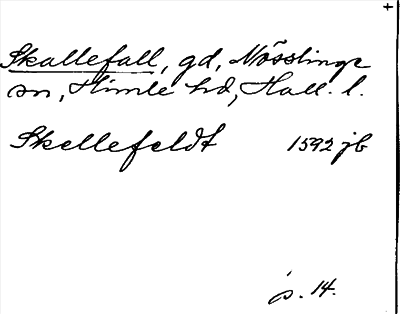 Skallefall, gd, Nösslinge
sn, Himle hd, Hall. l.
Skellefeldt 1592 jb
s. 14.